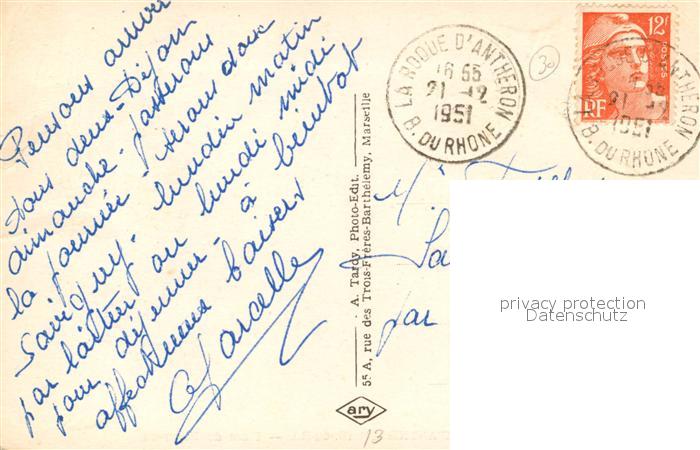 Pensons arriver
tous deux - Dijon
dimanche - passerons
la journée. Serons donc
Savigny. lundi matin
par ou lundi midi
pour déjeuner - à bientôt
affectueux baisers
Marcelle
A. Tardy, Photo-Edit.
55 A, rue des Trois-Frères-Barthélemy, Marseille
ary
13
30
LA ROQUE D'ANTHERON
16 55
21 -12
1951
B. DU RHONE
12F
POSTES
RF
LA ROQUE D'ANTHERON
21 -12
1951
B. DU RHONE
par
privacy protection
Datenschutz